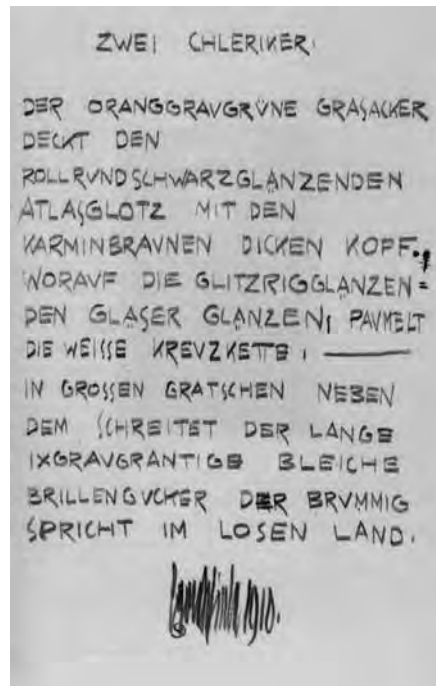 ZWEI CHLERIKER.
DER ORANGGRAVGRÜNE GRASACKER
DECKT DEN
ROLLRVNDSCHWARZGLÄNZENDEN
ATLASGLOTZ MIT DEN
KARMINBRAVNEN DICKEN KOPF.,
WORAVF DIE GLITZRIGGLÄNZEN=
DEN GLÄSER GLÄNZEN; PAVMELT
DIE WEISSE KREVZKETTE; —
IN GROSSEN GRATSCHEN NEBEN
DEM SCHREITET DER LANGE
IXGRAVGRANTIGE BLEICHE
BRILLENGVCKER DER BRVMMIG
SPRICHT IM LOSEN LAND.
1910.